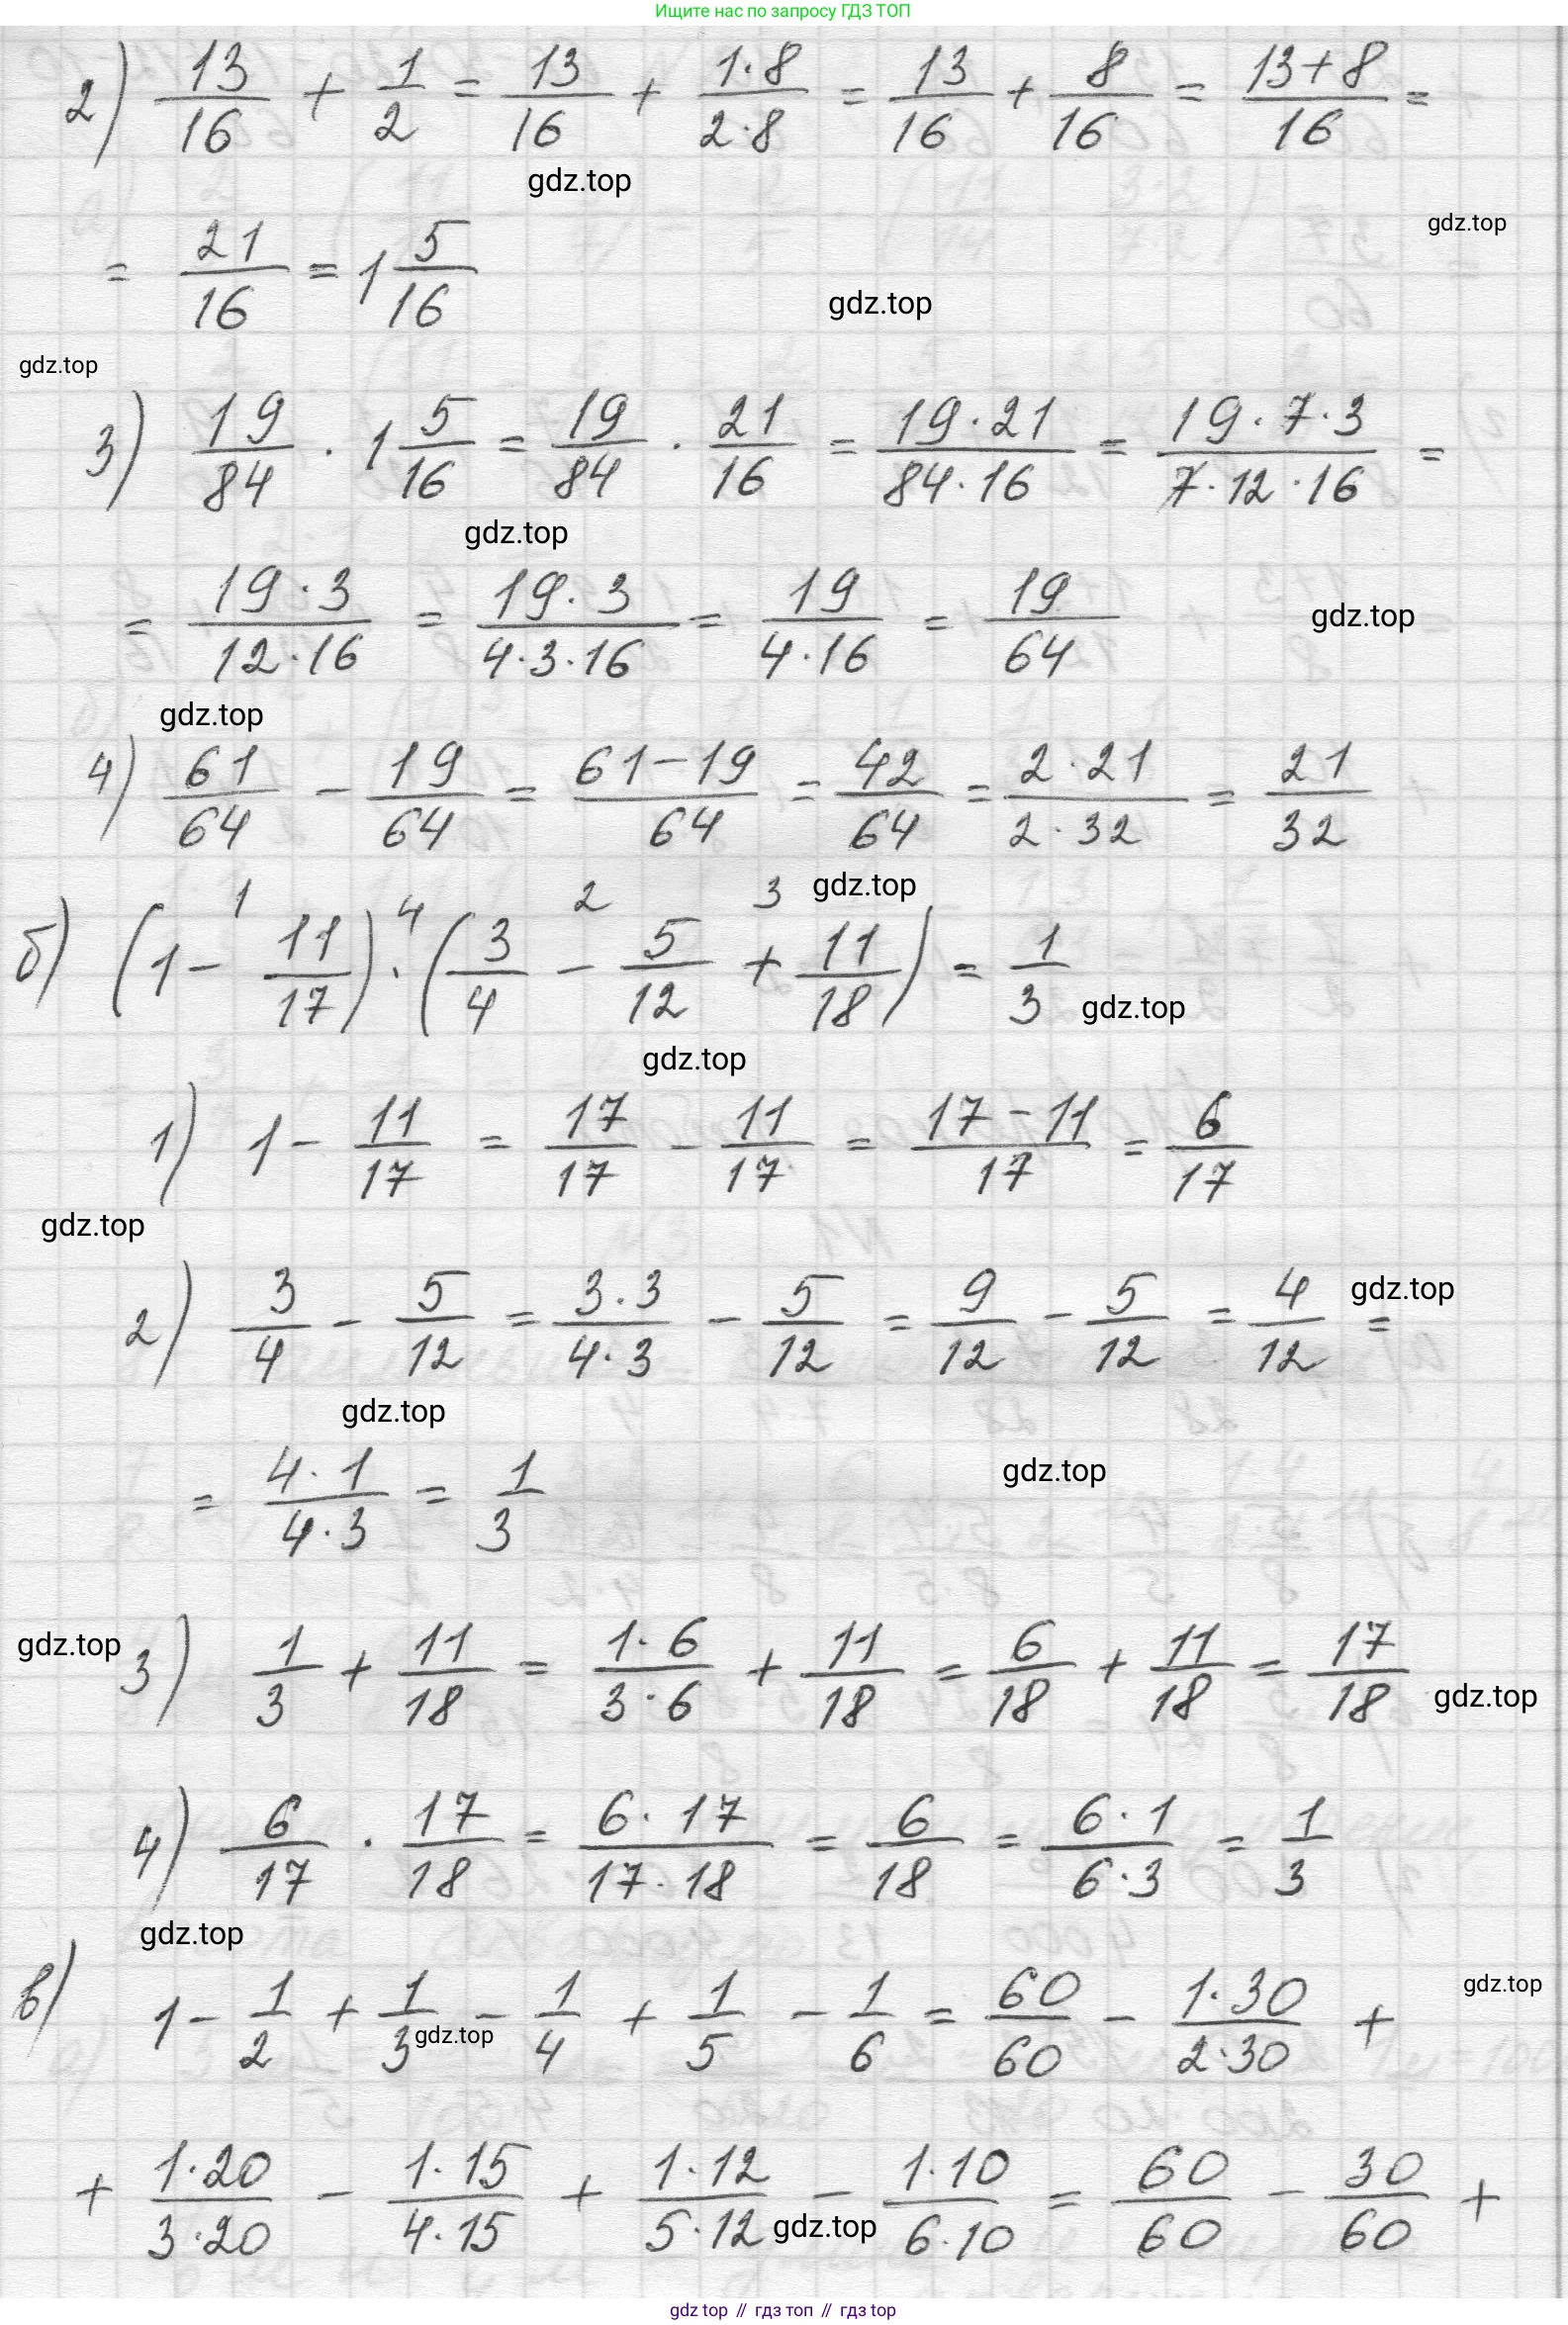 Ищите нас по запросу ГДЗ ТОП
2) 13/16 + 1/2 = 13/16 + 1·8/2·8 = 13/16 + 8/16 = 13+8/16 =
gdz.top
gdz.top
= 21/16 = 1 5/16
gdz.top
gdz.top
3) 19/84 · 1 5/16 = 19/84 · 21/16 = 19·21/84·16 = 19·7·3/7·12·16 =
gdz.top
= 19·3/12·16 = 19·3/4·3·16 = 19/4·16 = 19/64
gdz.top
gdz.top
4) 61/64 - 19/64 = 61-19/64 = 42/64 = 2·21/2·32 = 21/32
gdz.top
1 4 2 3
б) (1 - 11/17) · (3/4 - 5/12 + 11/18) = 1/3
gdz.top
gdz.top
1) 1 - 11/17 = 17/17 - 11/17 = 17-11/17 = 6/17
gdz.top
2) 3/4 - 5/12 = 3·3/4·3 - 5/12 = 9/12 - 5/12 = 4/12 =
gdz.top
gdz.top
= 4·1/4·3 = 1/3
gdz.top
gdz.top
3) 1/3 + 11/18 = 1·6/3·6 + 11/18 = 6/18 + 11/18 = 17/18
gdz.top
4) 6/17 · 17/18 = 6·17/17·18 = 6/18 = 6·1/6·3 = 1/3
gdz.top
в) 1 - 1/2 + 1/3 - 1/4 + 1/5 - 1/6 = 60/60 - 1·30/2·30 +
gdz.top
gdz.top
+ 1·20/3·20 - 1·15/4·15 + 1·12/5·12 - 1·10/6·10 = 60/60 - 30/60 +
gdz.top
gdz top // гдз топ // гдз top